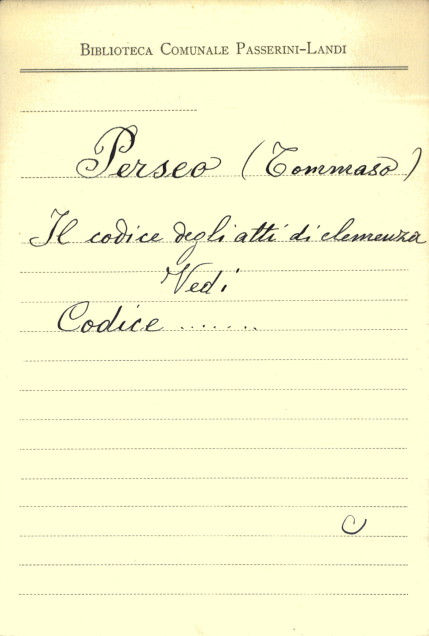 BIBLIOTECA COMUNALE PASSERINI-LANDI
Perseo (Tommaso)
Il codice degli atti di clemenza
Vedi
Codice .......
C